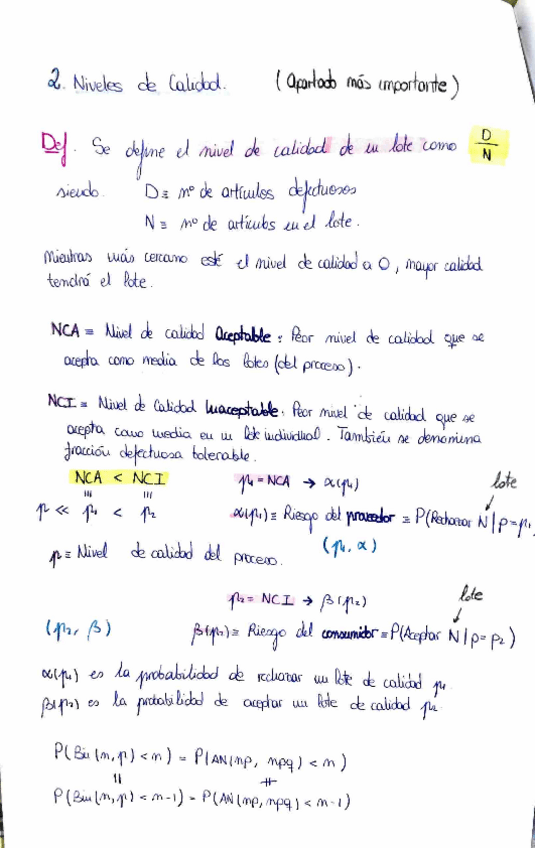 2. Niveles de Calidad. (Apartado más importante)
Def. Se define el nivel de calidad de un lote como D/N
siendo. D ≡ nº de artículos defectuosos
N ≡ nº de artículos en el lote.
Mientras más cercano esté el nivel de calidad a 0, mayor calidad
tendrá el lote.
NCA ≡ Nivel de calidad Aceptable: Peor nivel de calidad que se
acepta como media de los lotes (del proceso).
NCI ≡ Nivel de Calidad Inaceptable: Peor nivel de calidad que se
acepta como media en un lote individual. También se denomina
fracción defectuosa tolerable.
NCA < NCI p₁ = NCA → α(p₁) lote
p << p₁ < p₂ α(p₁) ≡ Riesgo del proveedor ≡ P(Rechazar N | p = p₁
(p₁, α)
p ≡ Nivel de calidad del proceso.
p₂ = NCI → β(p₂) lote
(p₂, β) β(p₂) ≡ Riesgo del consumidor ≡ P(Aceptar N | p = p₂)
α(p₁) es la probabilidad de rechazar un lote de calidad p₁.
β(p₂) es la probabilidad de aceptar un lote de calidad p₂.
P(Bin(n, p) < m) = P(AN(np, npq) < m)
= ≠
P(Bin(n, p) < m-1) = P(AN(np, npq) < m-1)